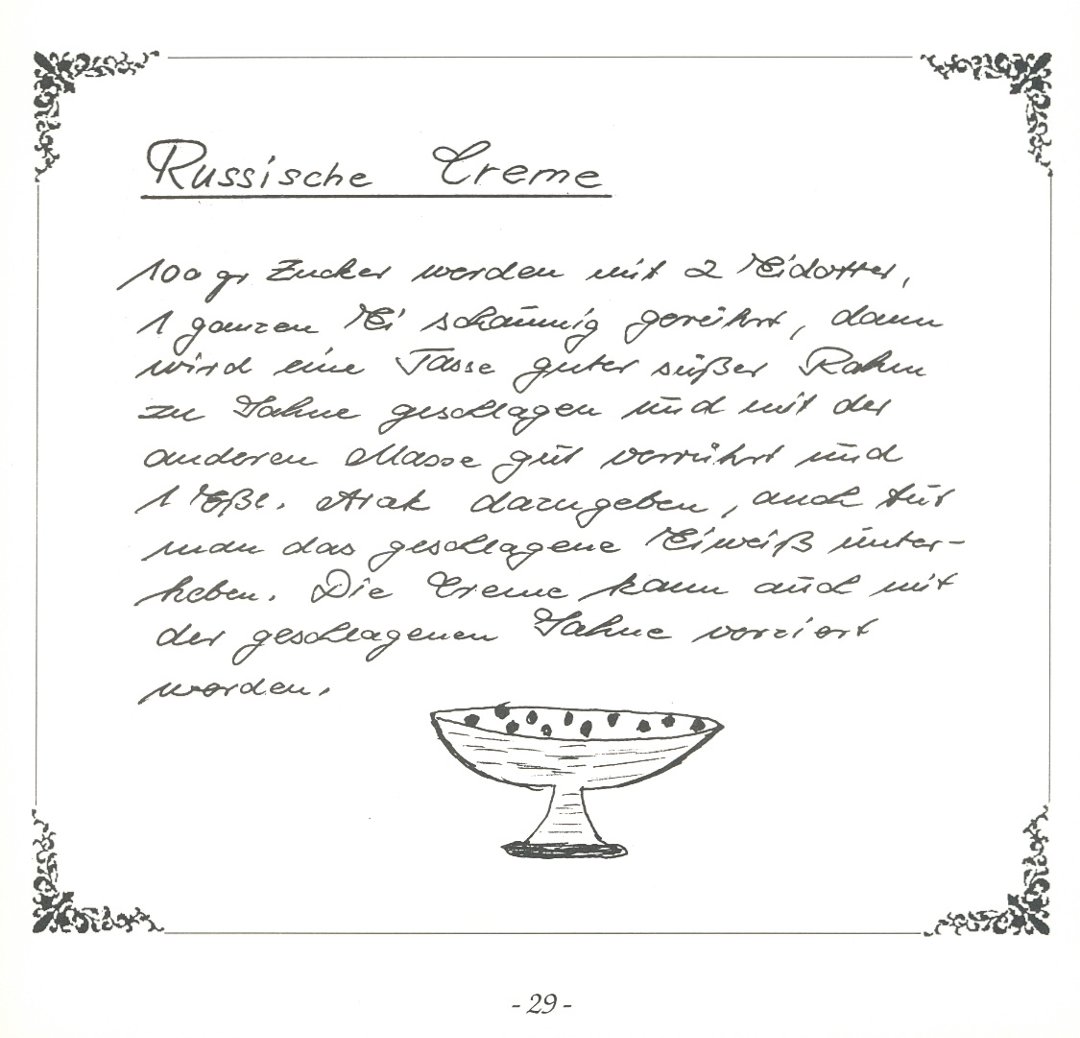 Russische Creme
100 gr Zucker werden mit 2 Eidotter,
1 ganzen Ei schaumig gerührt, dann
wird eine Tasse guter süßer Rahm
zu Sahne geschlagen und mit der
anderen Masse gut verrührt und
1 Eßl. Arak dazugeben, auch tut
man das geschlagene Eiweiß unter-
heben. Die Creme kann auch mit
der geschlagenen Sahne verziert
werden.
- 29 -